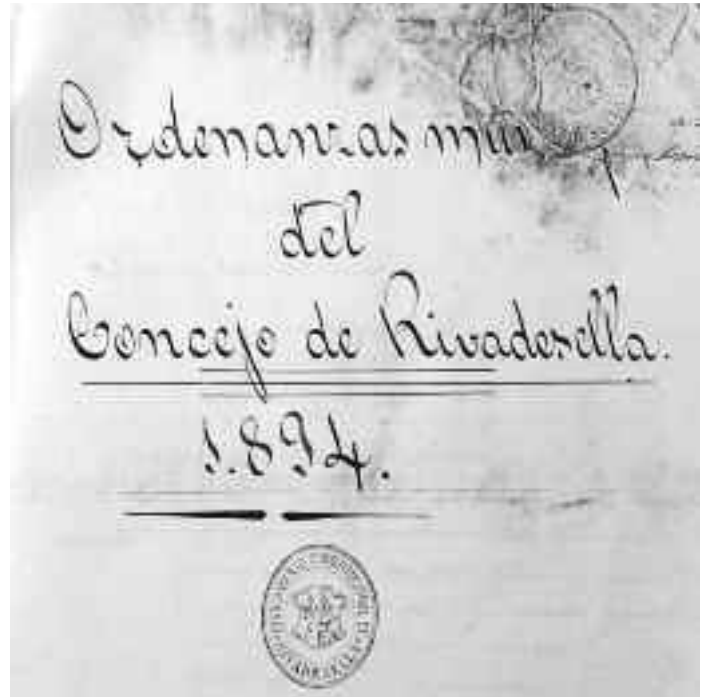 Ordenanzas
del
Concejo de Rivadesella.
1.894.